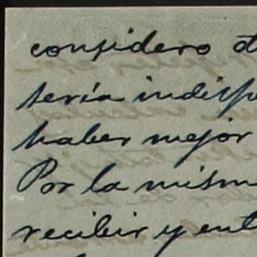 considero
sería indisp
haber mejor
Por la misma
recibir y ent